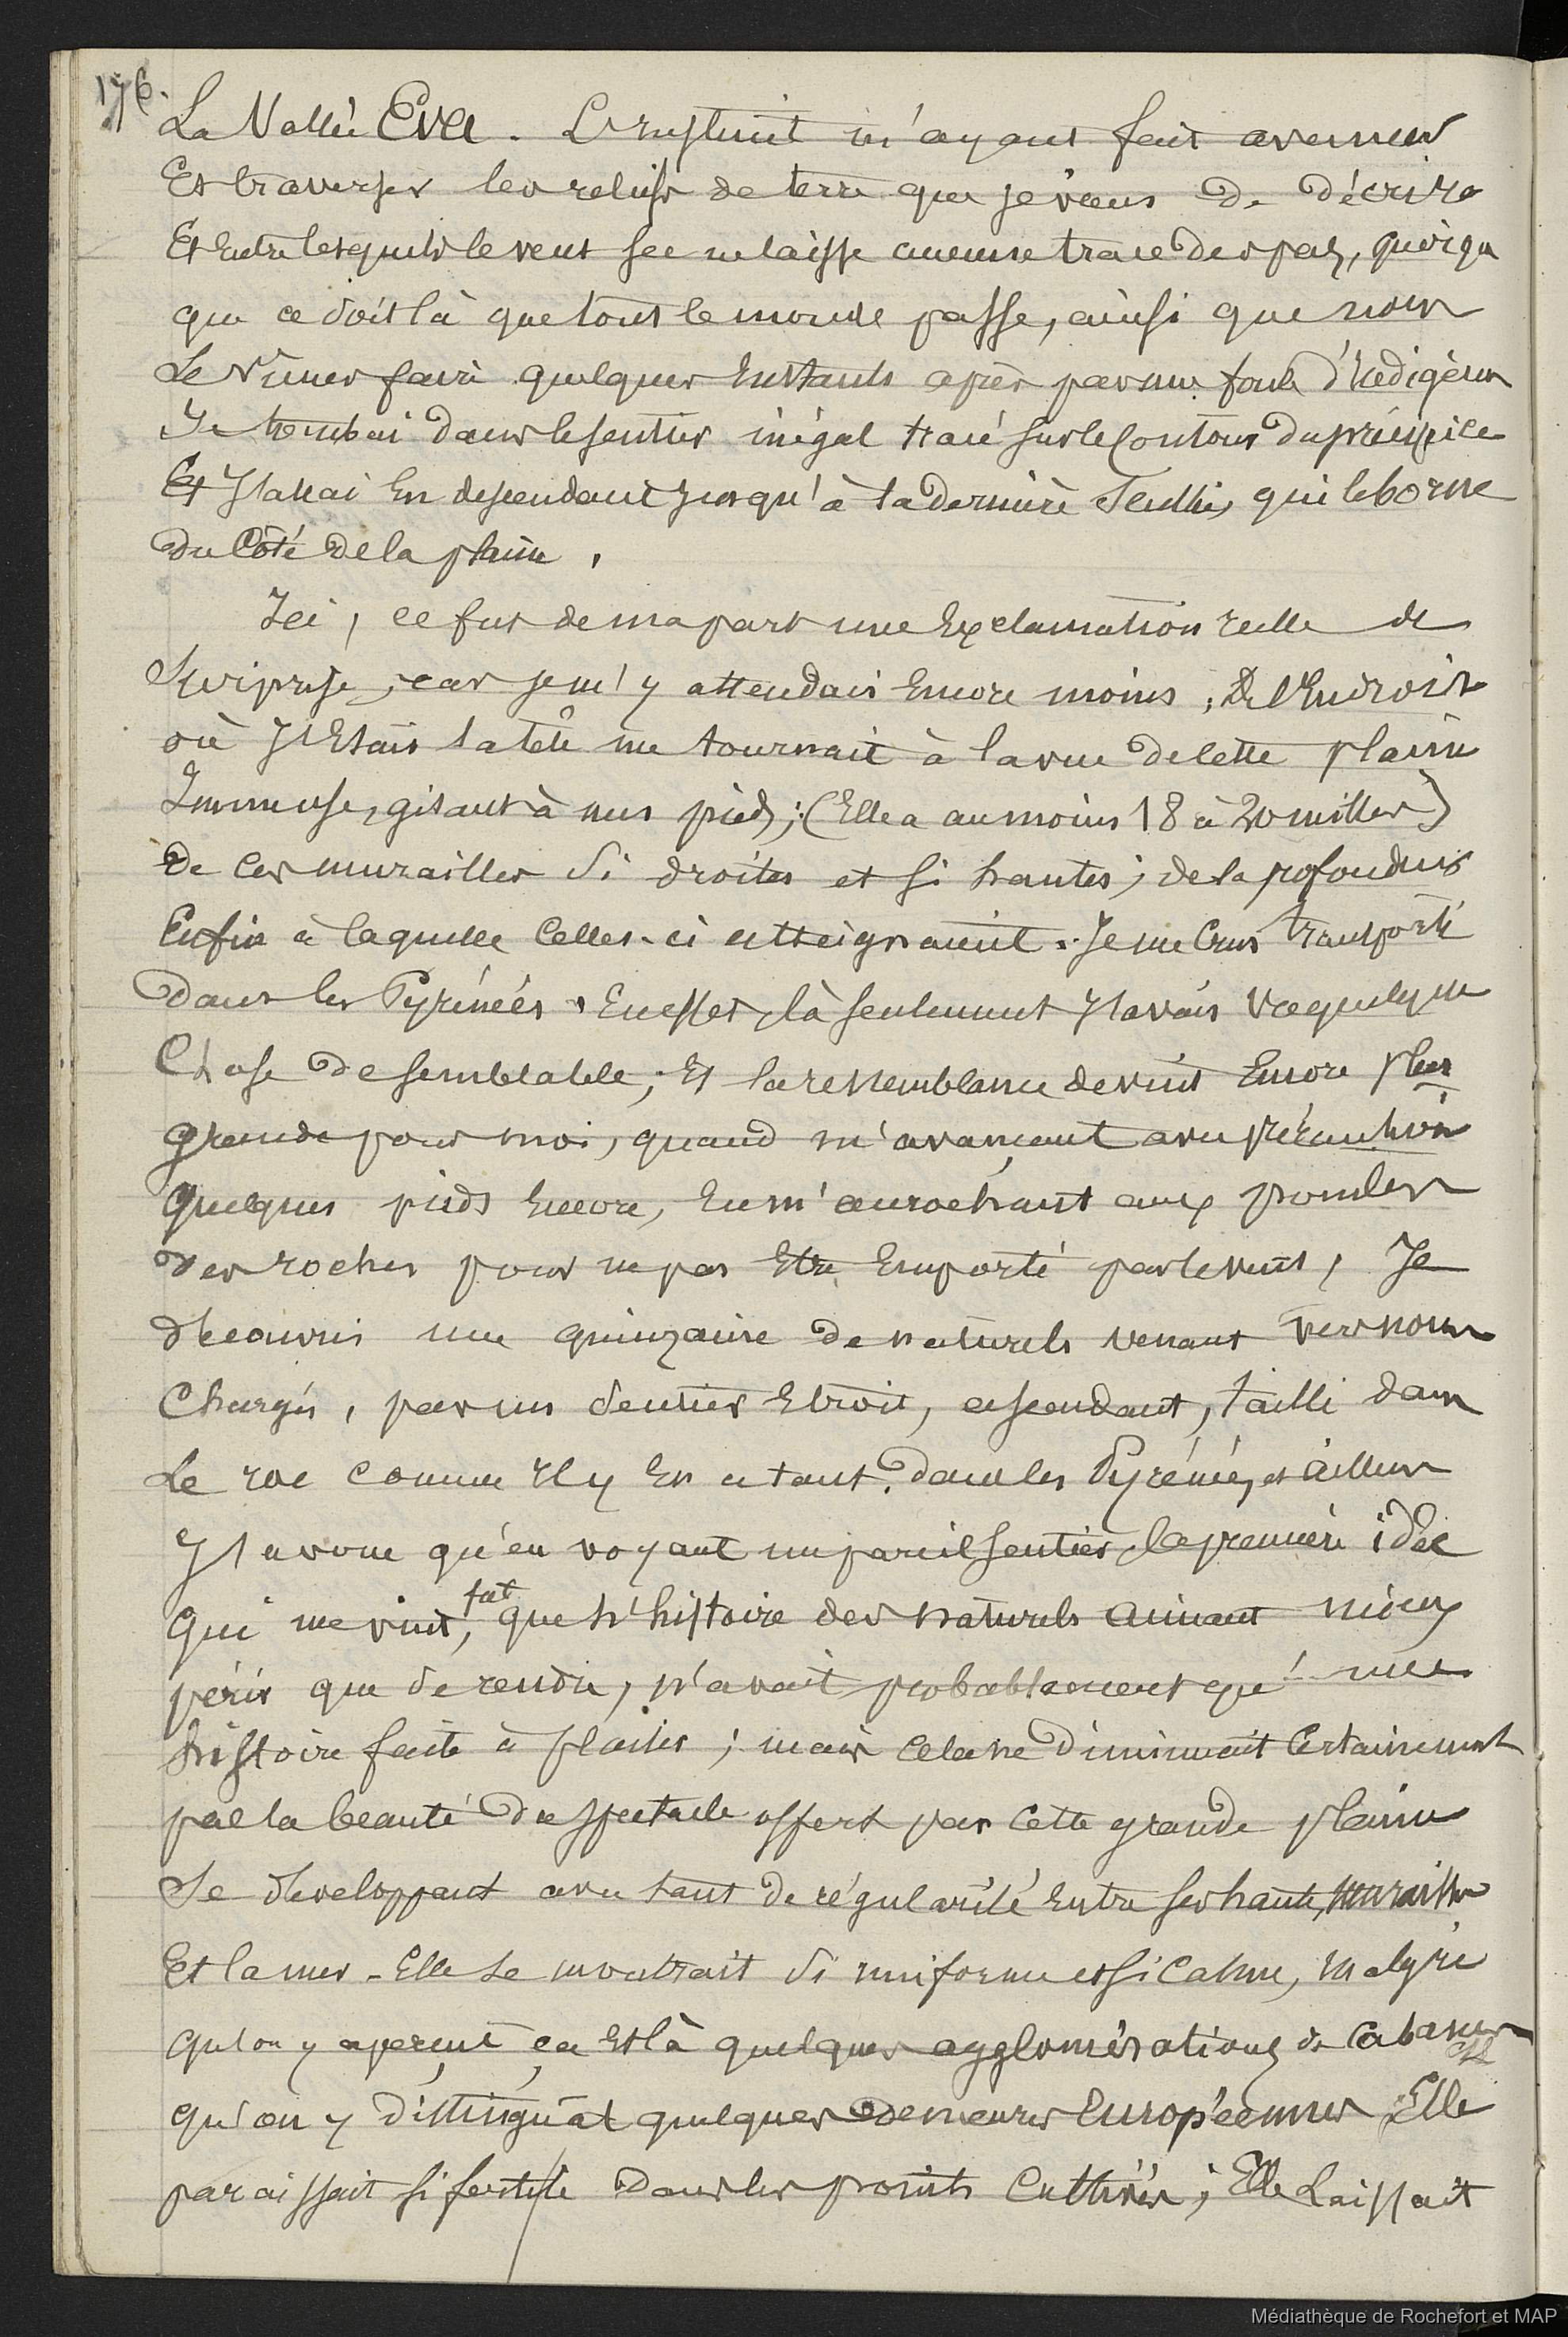 176.
La Vallée Eva. L'instinct m'ayant fait avancer
Et traverser les reliefs de terre que je viens de décrire
Et entre lesquels le vent sec ne laisse aucune trace des pas, quoique
que ce soit là que tout le monde passe, ainsi que nous
Le vîmes faire quelques instants après par une foule d'Indigènes
Je tombai dans le sentier inégal tracé sur le contour du précipice
Et j'allai En descendant jusqu'à la dernière qui le borne
du Côté de la plaine.
Ici, ce fut de ma part une Exclamation réelle de
Surprise, car je m'y attendais Encore moins; De l'Endroit
où j'Etais la tête me tournait à la vue de cette plaine
Immense, gisant à mes pieds; (Elle a au moins 18 à 20 milles)
de ces murailles si droites et si hautes; de la profondeur
Enfin à laquelle Celles-ci atteignaient. Je me Crus transporté
dans les Pyrénées. En effet, là seulement j'avais vu quelque
Chose de semblable; Et la ressemblance devint Encore plus
grande pour moi, quand m'avançant avec précaution
quelques pieds Encore, En m'accrochant aux
des roches pour ne pas Etre Emporté par le vent, Je
découvris une quinzaine de naturels venant vers nous
Chargés, par un sentier Etroit, ascendant, taillé dans
Le roc comme Il y En a tant dans les Pyrénées et ailleurs
J'avoue qu'en voyant un pareil sentier, la première idée
qui me vint, fut que l'histoire des naturels aimant mieux
périr que de rendre, n'avait probablement qu' une
histoire faite à plaisir; mais cela ne diminuait Certainement
pas la beauté du spectacle offert par Cette grande plaine
Se développant avec tant de régularité Entre ses hautes murailles
Et la mer - Elle se montrait si uniforme et si Calme, malgré
qu'on y aperçut ça Et là quelques agglomérations de Cabanes et
qu'on y distinguât quelques demeures Européennes Elle
paraissait si fertile dans les points Cultivés; Elle Laissait
Médiathèque de Rochefort et MAP